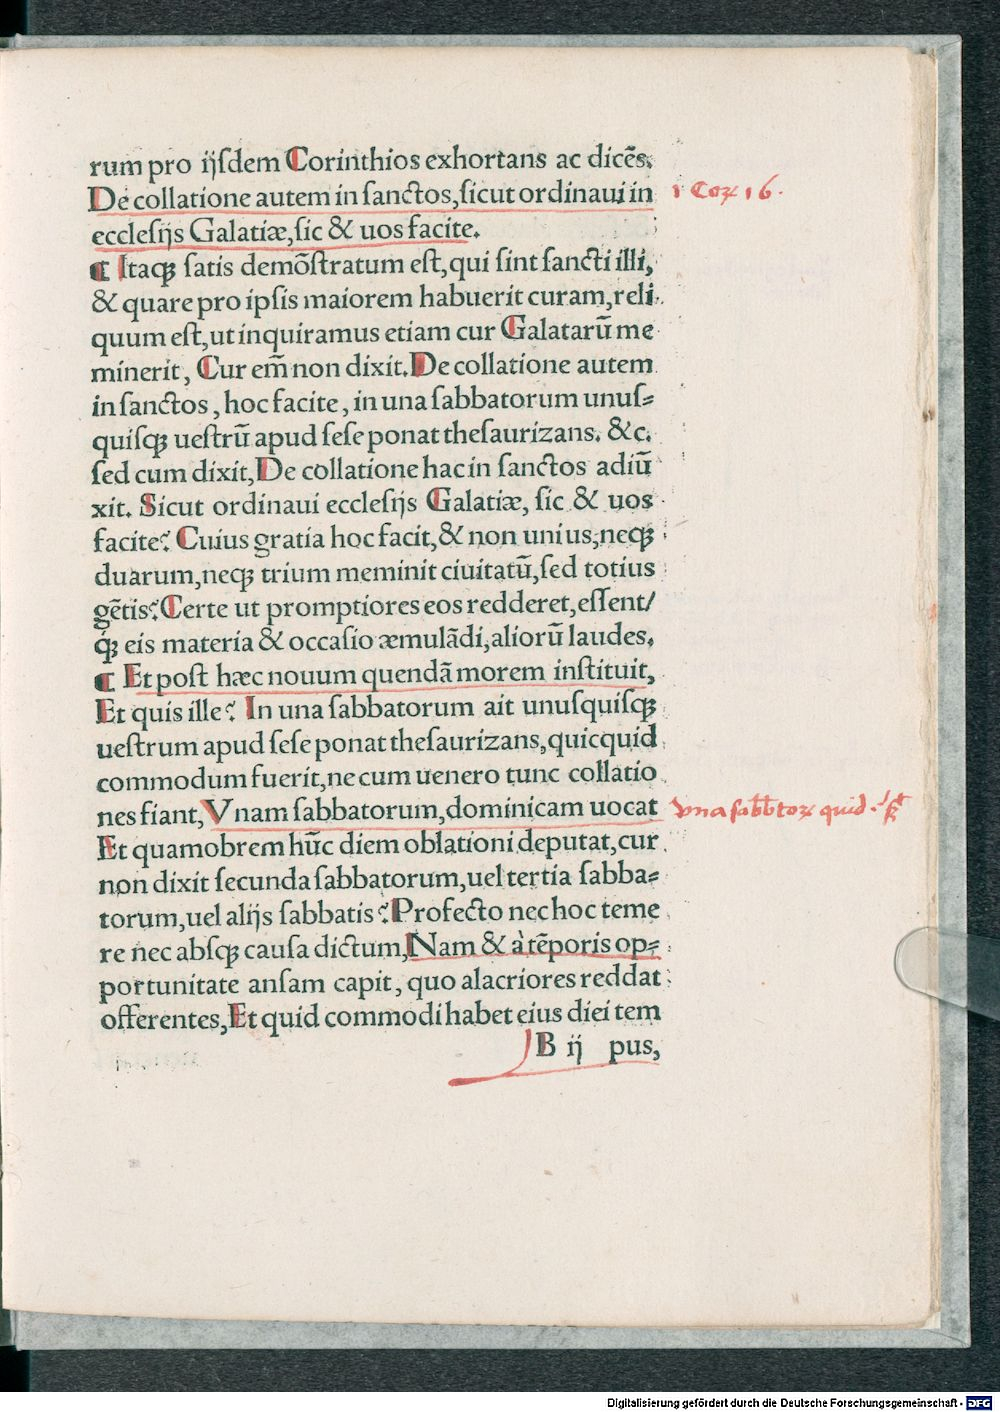 rum pro ijsdem Corinthios exhortans ac dicẽs,
De collatione autem in sanctos, sicut ordinaui in
1 Coꝝ 16.
ecclesijs Galatiæ, sic & uos facite.
¶ Itaqꝫ satis demõstratum est, qui sint sancti illi,
& quare pro ipsis maiorem habuerit curam, reli
quum est, ut inquiramus etiam cur Galatarũ me
minerit, Cur em̃ non dixit. De collatione autem
in sanctos, hoc facite, in una sabbatorum unus⸗
quisqꝫ uestrũ apud sese ponat thesaurizans. &c.
sed cum dixit, De collatione hac in sanctos adiũ
xit. Sicut ordinaui ecclesijs Galatiæ, sic & uos
facite? Cuius gratia hoc facit, & non unius, neqꝫ
duarum, neqꝫ trium meminit ciuitatũ, sed totius
gẽtis? Certe ut promptiores eos redderet, essent/
qꝫ eis materia & occasio æmulãdi, aliorũ laudes.
¶ Et post hæc nouum quendã morem instituit,
Et quis ille? In una sabbatorum ait unusquisqꝫ
uestrum apud sese ponat thesaurizans, quicquid
commodum fuerit, ne cum uenero tunc collatio
nes fiant, Vnam sabbatorum, dominicam uocat
vna sabbtoꝝ quid
Et quamobrem hũc diem oblationi deputat, cur
non dixit secunda sabbatorum, uel tertia sabba⸗
torum, uel alijs sabbatis? Profecto nec hoc teme
re nec absqꝫ causa dictum, Nam & à tẽporis op⸗
portunitate ansam capit, quo alacriores reddat
offerentes, Et quid commodi habet eius diei tem
B ij pus,
Digitalisierung gefördert durch die Deutsche Forschungsgemeinschaft - DFG